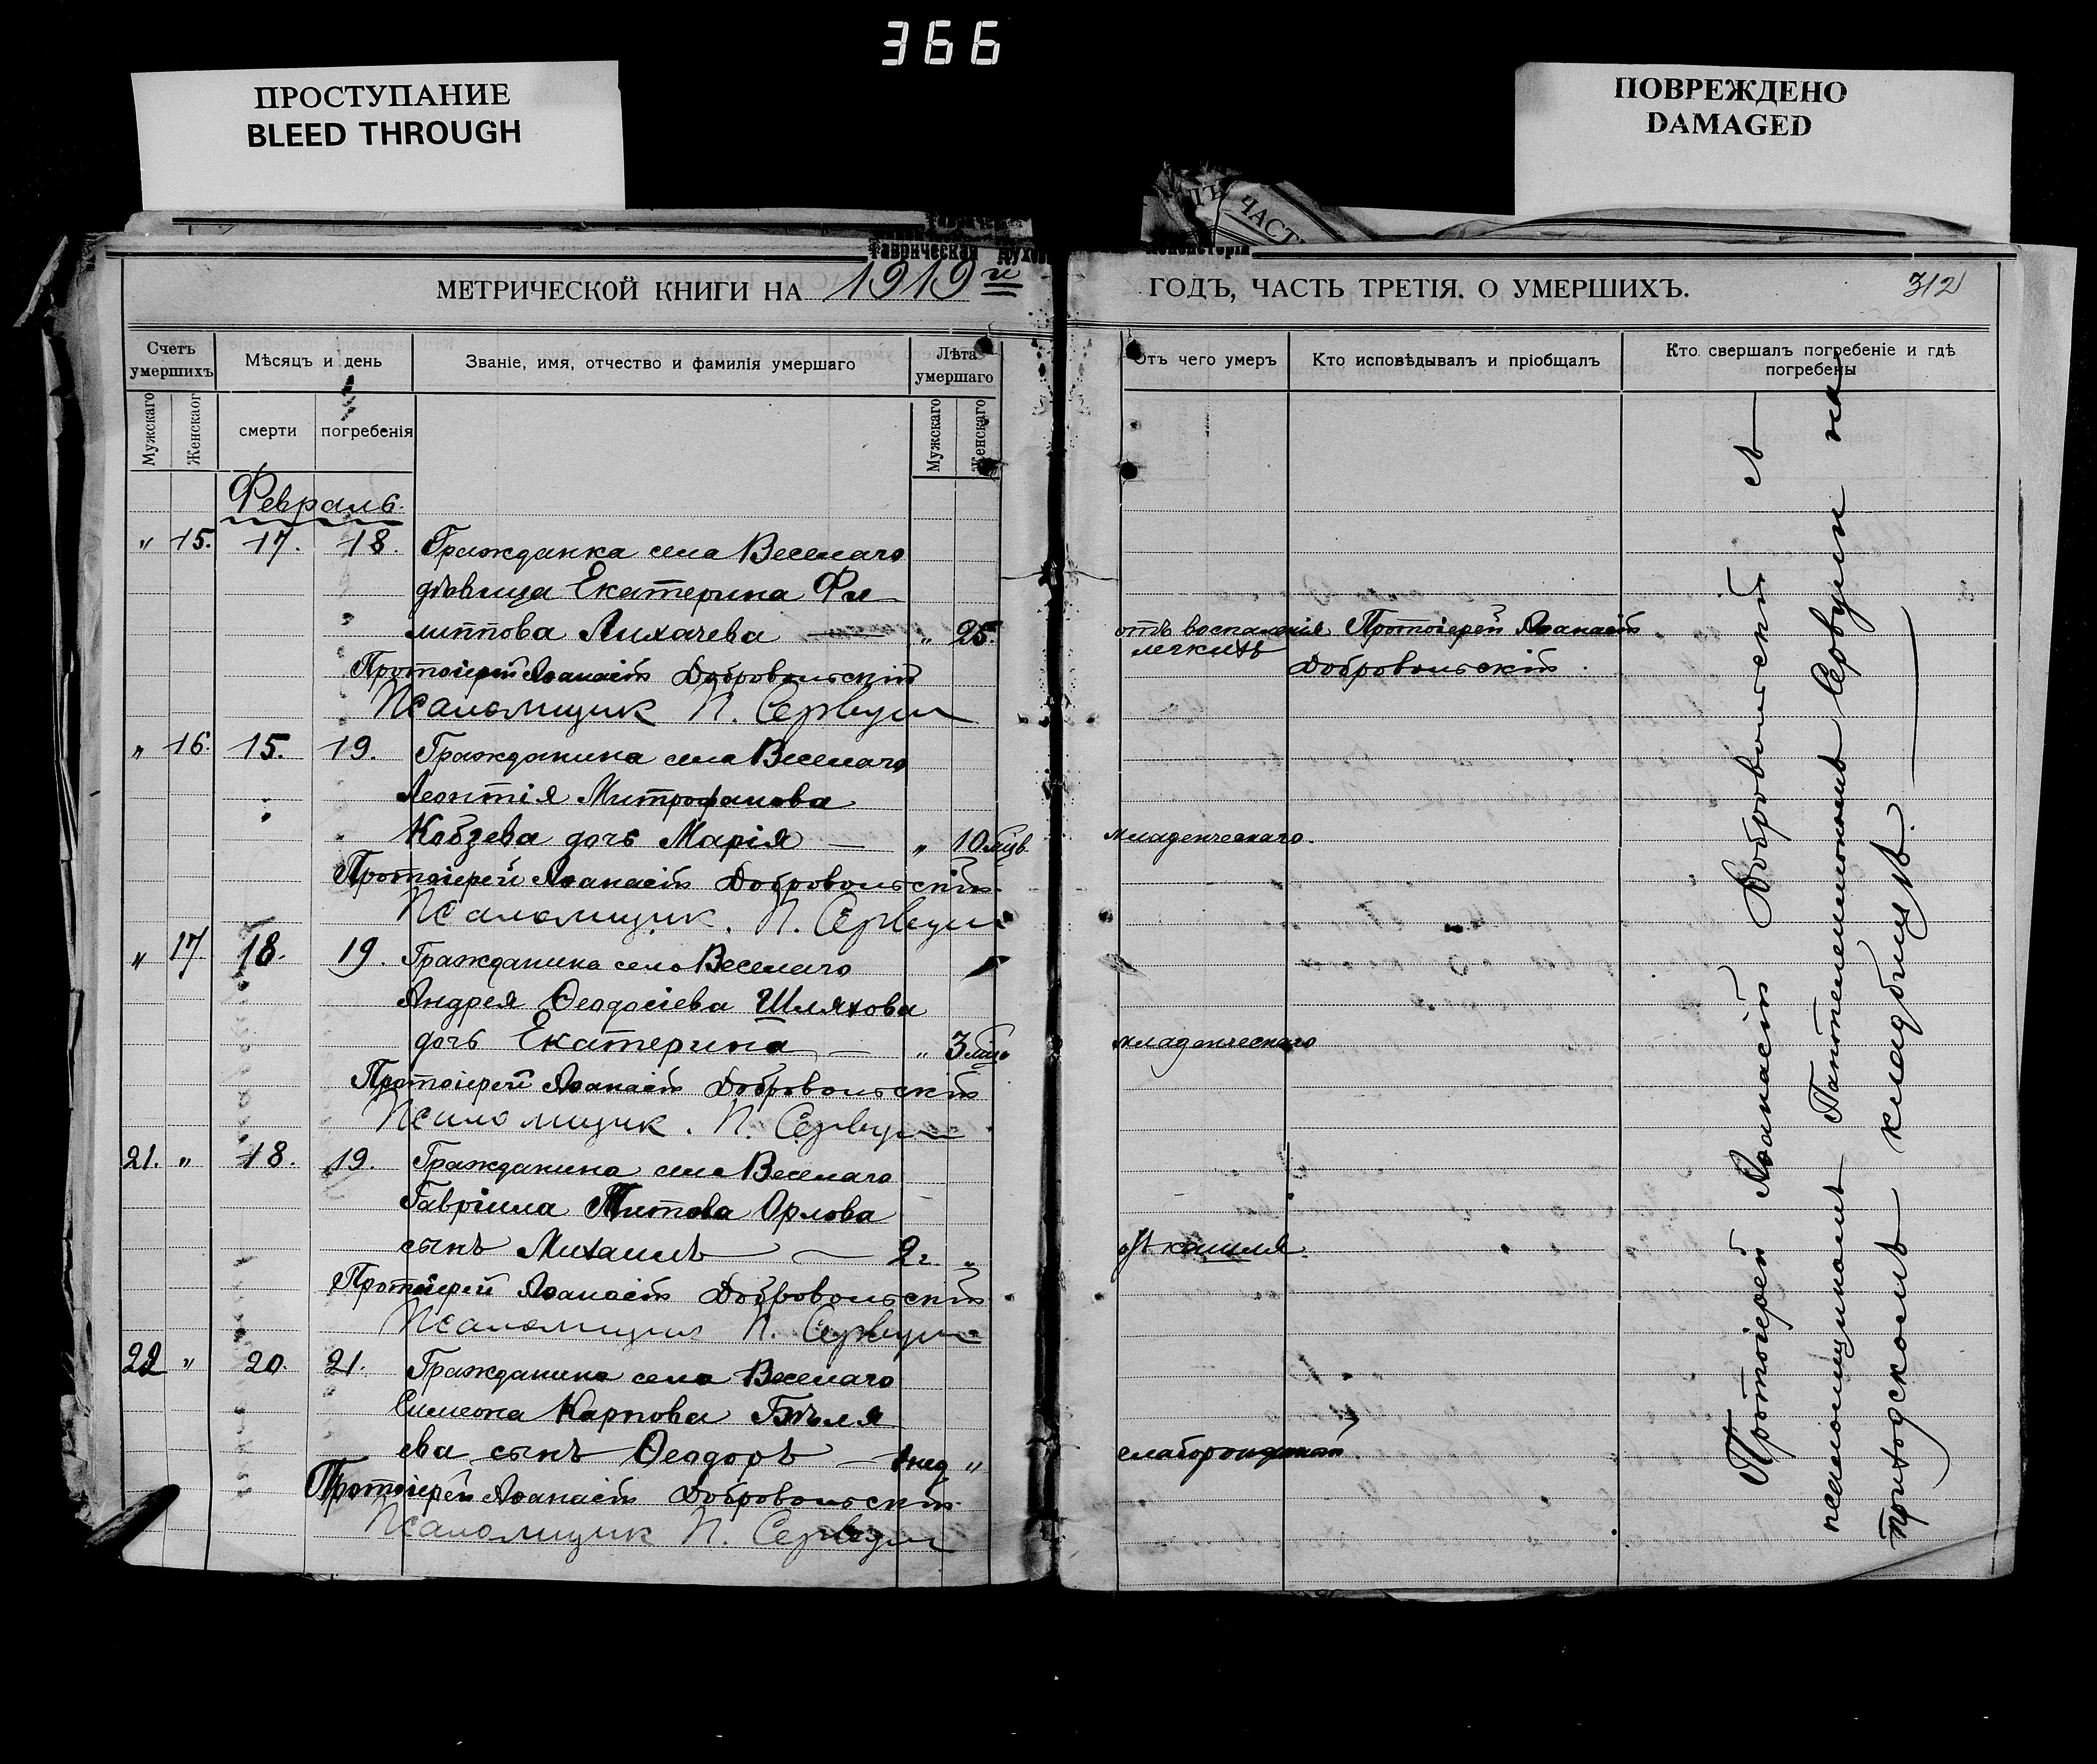 366
ПРОСТУПАНИЕ
BLEED THROUGH
ПОВРЕЖДЕНО
DAMAGED
ЧАСТ
Таврическая Духов
Консисторія
МЕТРИЧЕСКОЙ КНИГИ НА 1919 й
ГОДЪ, ЧАСТЬ ТРЕТІЯ. О УМЕРШИХЪ.
312
Счетъ умершихъ
Мѣсяцъ и день
Званіе, имя, отчество и фамилія умершаго
Лѣта умершаго
Отъ чего умеръ
Кто исповѣдывалъ и пріобщалъ
Кто свершалъ погребеніе и гдѣ погребены
Мужскаго
Женскаог
смерти
погребенія
Мужскаго
Женскаго
Февраль.
" 15. 17. 18. Гражданка села Веселаго
дѣвица Екатерина Фи
липпова Лихачева — " 25. отъ воспаленія легкихъ Протоіерей Аѳанасій
Протоіерей Аѳанасій Добровольскій Добровольскій.
Псаломщик П. Сервули
" 16. 15. 19. Гражданина села Веселаго
Леонтія Митрофанова
Кобзева дочь Марія — " 10 мцв младенческаго.
Протоіерей Аѳанасій Добровольскій.
Псаломщик. П. Сервули
" 17. 18. 19. Гражданина села Веселаго
Андрея Ѳеодосіева Шляхова
дочь Екатерина — " 3 мца младенческаго
Протоіерей Аѳанасій Добровольскій
Псаломщик. П. Сервули
21. " 18. 19. Гражданина села Веселаго
Гавріила Титова Орлова
сынъ Михаилъ — 2 г. " отъ кашля.
Протоіерей Аѳанасій Добровольскій
Псаломщик П. Сервули
22 " 20. 21. Гражданина села Веселаго
Симеона Карпова Бѣля
ева сынъ Ѳеодоръ — 1 нед " слаборожденный.
Протоіерей Аѳанасій Добровольскій.
Псаломщик П. Сервули
Протоіерей Аѳанасій Добровольскій съ
псаломщикомъ Пантелеимономъ Сервули на
приходскомъ кладбищѣ.